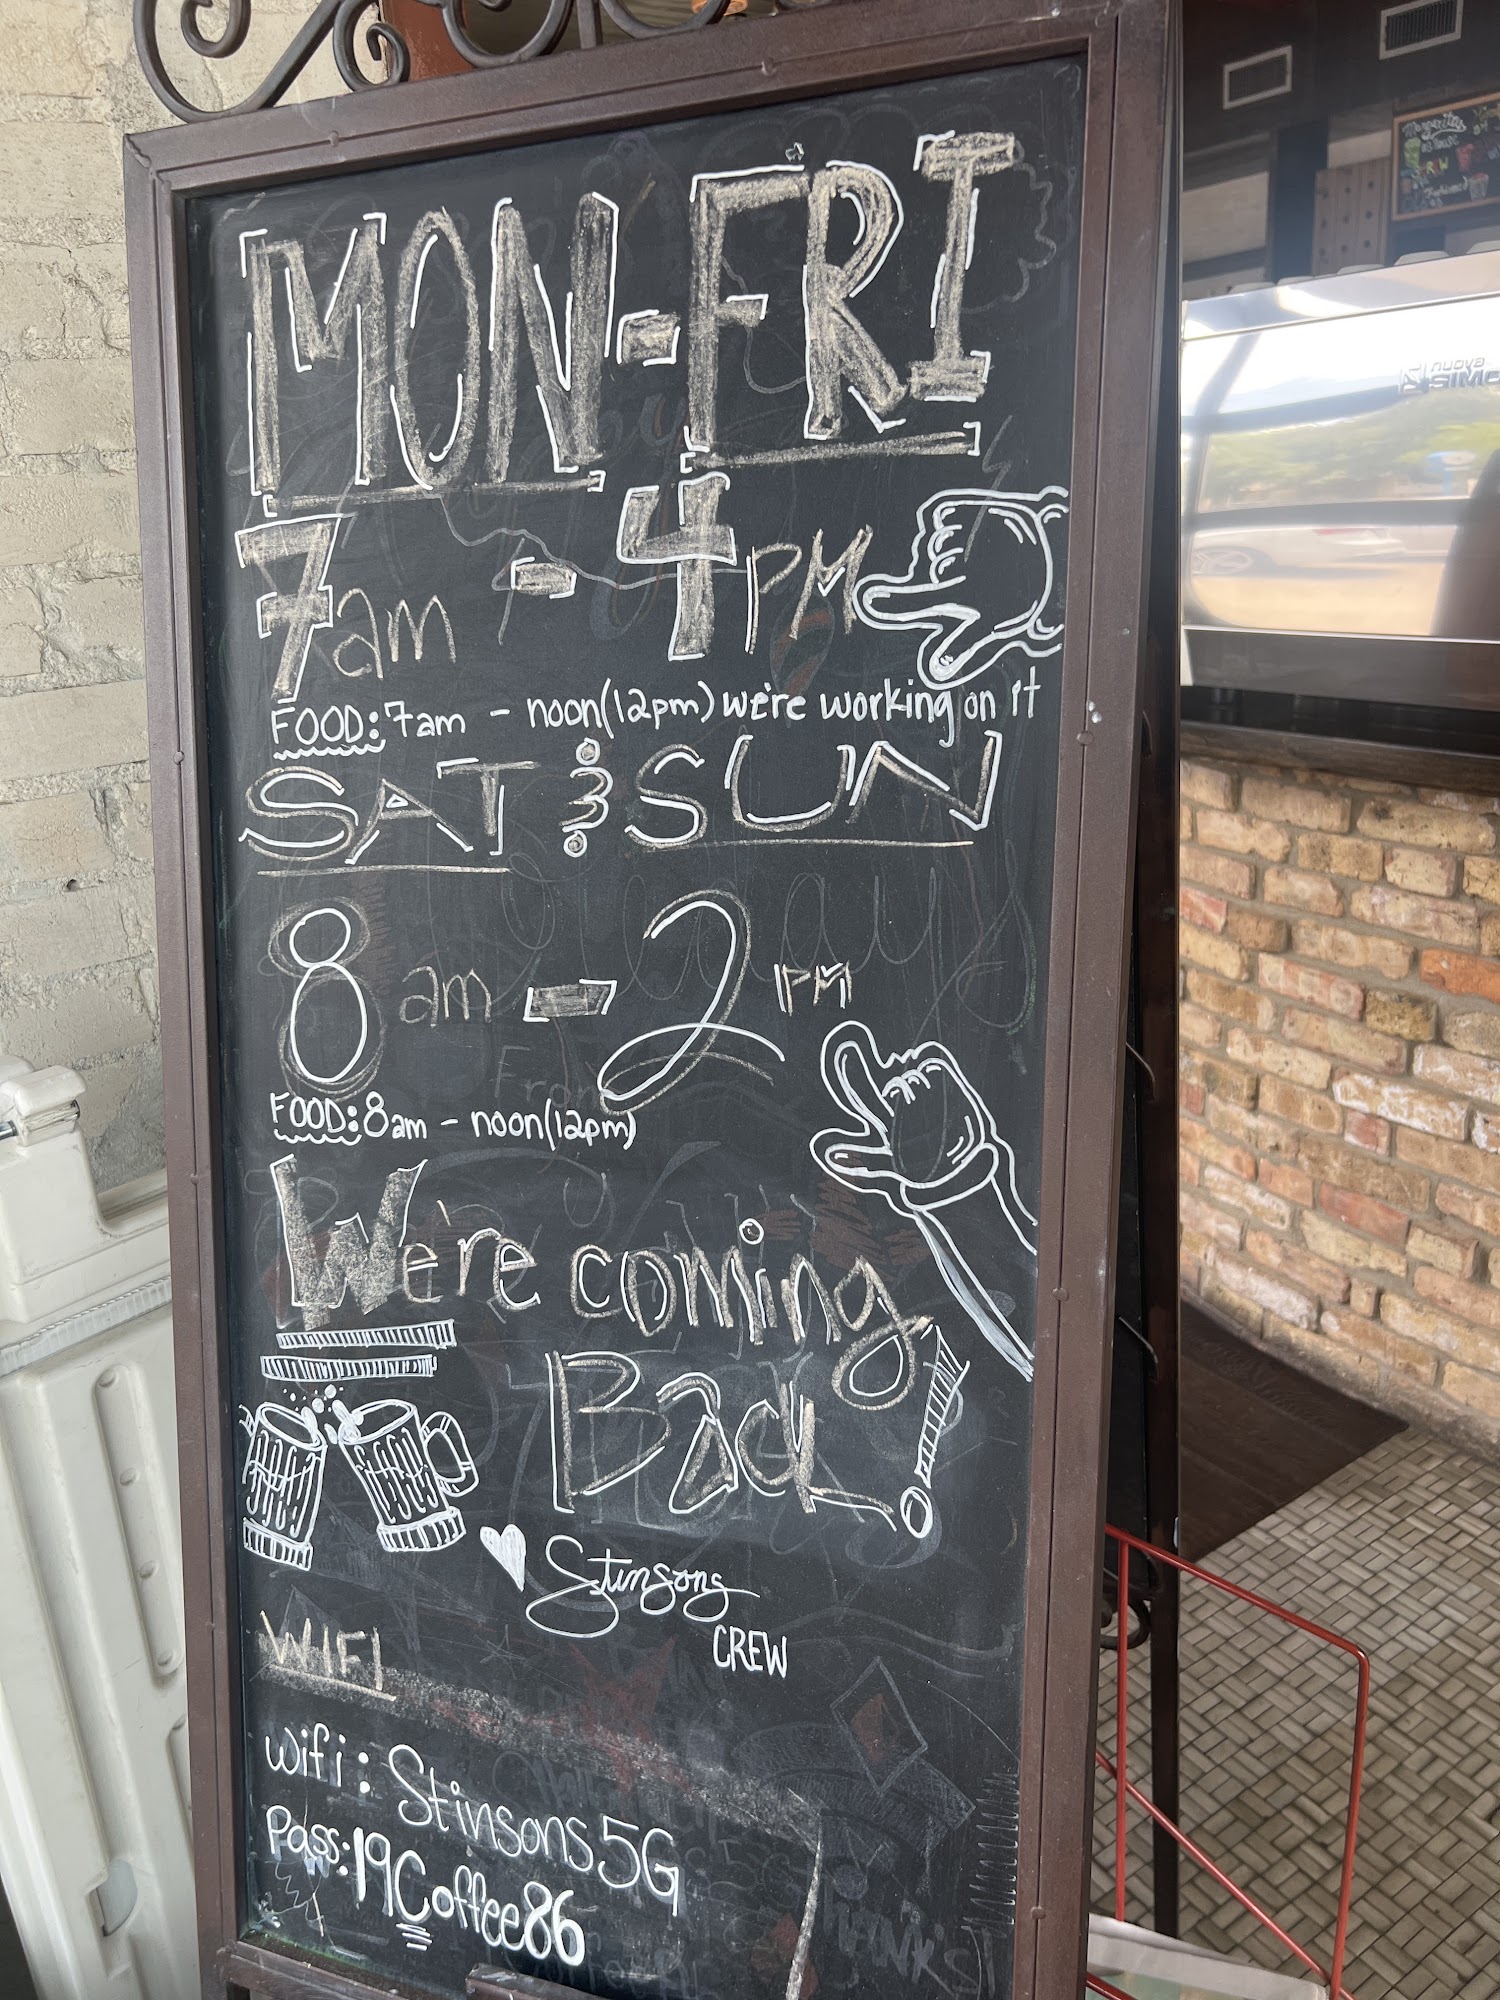 MON-FRI
7am - 4PM
FOOD: 7am - noon(12pm) we're working on it
SAT & SUN
8 am - 2 PM
FOOD: 8am - noon(12pm)
We're coming
Back!
Stinsons
CREW
WIFI
wifi: Stinsons5G
Pass: 19Coffee86
nuova
SIMO
Margaritas